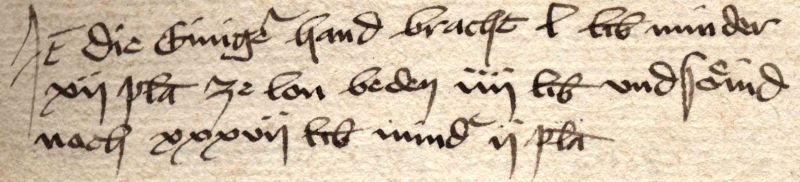 It die Einiger hand bracht l lib minder
xij pla ze lon beden iiij lib und sõind
noch xxxvij lib mind' ij pla